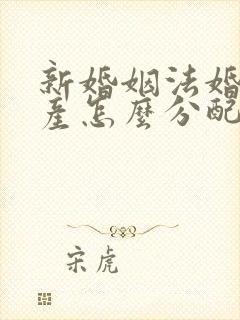 新婚姻法婚
産怎麽分配
宋虎